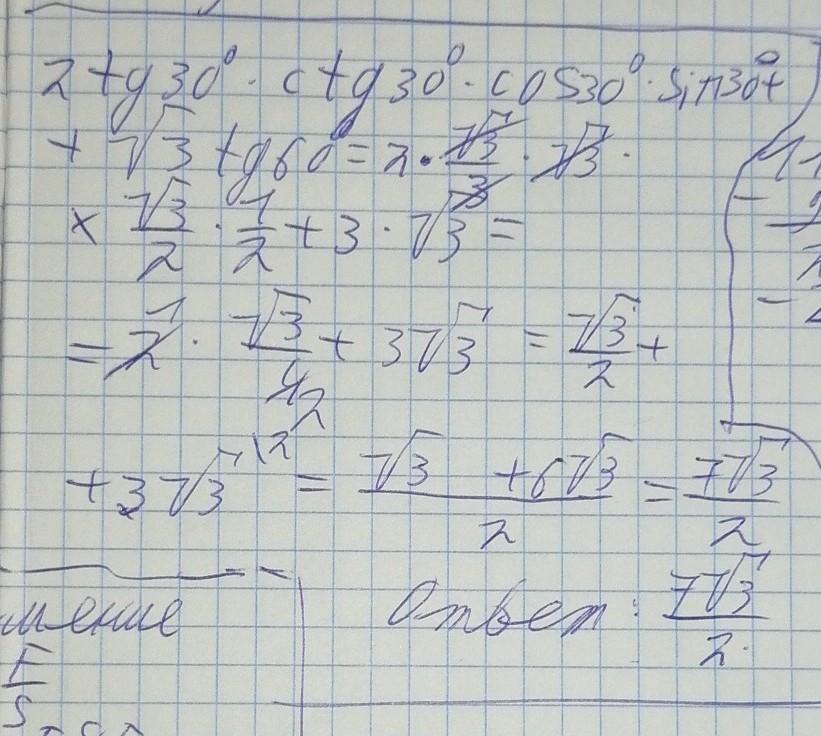 2 tg30° · ctg30° · cos30° · sin30° +
+ √3 tg60° = 2 · √3/3 · √3 ·
× √3/2 · 1/2 + 3 · √3 =
= 2 1 · √3/4 2 + 3√3 = √3/2 +
+ 3√3 \2 = √3 + 6√3 / 2 = 7√3/2
Ответ: 7√3/2
мение
F
S